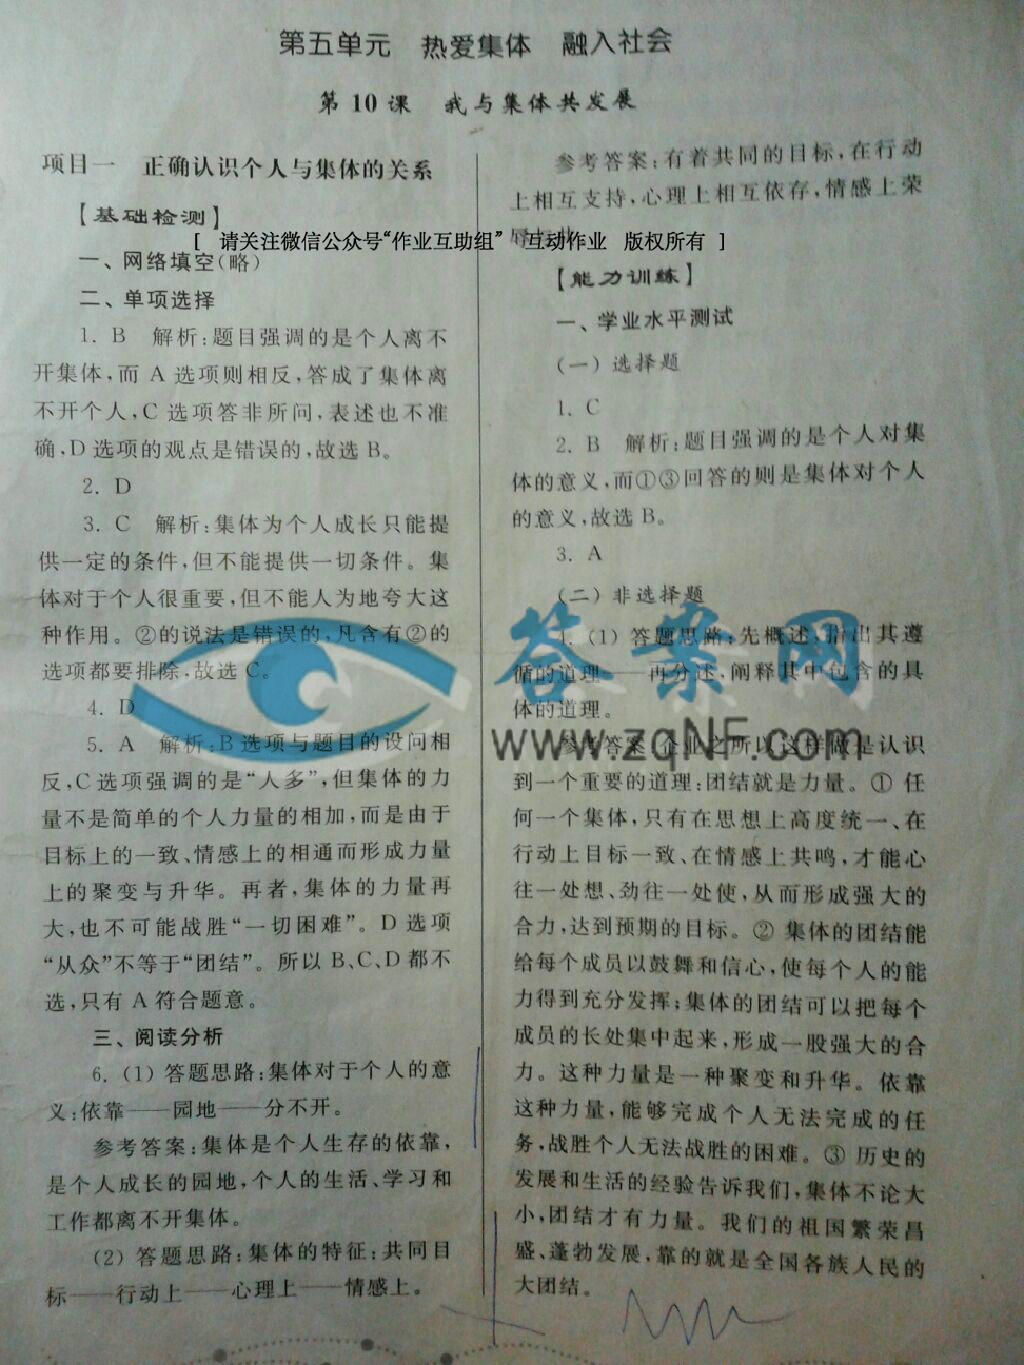 第五单元 热爱集体 融入社会
第10课 我与集体共发展
项目一 正确认识个人与集体的关系
【基础检测】
[ 请关注微信公众号“作业互助组” 互动作业 版权所有 ]
一、网络填空(略)
二、单项选择
1. B 解析:题目强调的是个人离不
开集体,而 A 选项则相反,答成了集体离
不开个人,C 选项答非所问,表述也不准
确,D 选项的观点是错误的,故选 B。
2. D
3. C 解析:集体为个人成长只能提
供一定的条件,但不能提供一切条件。集
体对于个人很重要,但不能人为地夸大这
种作用。②的说法是错误的,凡含有②的
选项都要排除,故选 C。
4. D
5. A 解析:B 选项与题目的设问相
反,C 选项强调的是“人多”,但集体的力
量不是简单的个人力量的相加,而是由于
目标上的一致、情感上的相通而形成力量
上的聚变与升华。再者,集体的力量再
大,也不可能战胜“一切困难”。D 选项
“从众”不等于“团结”。所以 B、C、D 都不
选,只有 A 符合题意。
三、阅读分析
6. (1) 答题思路:集体对于个人的意
义:依靠——园地——分不开。
参考答案:集体是个人生存的依靠,
是个人成长的园地,个人的生活、学习和
工作都离不开集体。
(2) 答题思路:集体的特征:共同目
标——行动上——心理上——情感上。
参考答案:有着共同的目标,在行动
上相互支持,心理上相互依存,情感上荣
【能力训练】
一、学业水平测试
(一) 选择题
1. C
2. B 解析:题目强调的是个人对集
体的意义,而①③回答的则是集体对个人
的意义,故选 B。
3. A
(二) 非选择题
4. (1) 答题思路:先概述,指出其遵
循的道理——再分述,阐释其中包含的具
体的道理。
答案网
www.zqNF.com
参考答案:企业之所以这样做是认识
到一个重要的道理:团结就是力量。① 任
何一个集体,只有在思想上高度统一、在
行动上目标一致、在情感上共鸣,才能心
往一处想、劲往一处使,从而形成强大的
合力,达到预期的目标。② 集体的团结能
给每个成员以鼓舞和信心,使每个人的能
力得到充分发挥;集体的团结可以把每个
成员的长处集中起来,形成一股强大的合
力。这种力量是一种聚变和升华。依靠
这种力量,能够完成个人无法完成的任
务,战胜个人无法战胜的困难。③ 历史的
发展和生活的经验告诉我们,集体不论大
小,团结才有力量。我们的祖国繁荣昌
盛、蓬勃发展,靠的就是全国各族人民的
大团结。